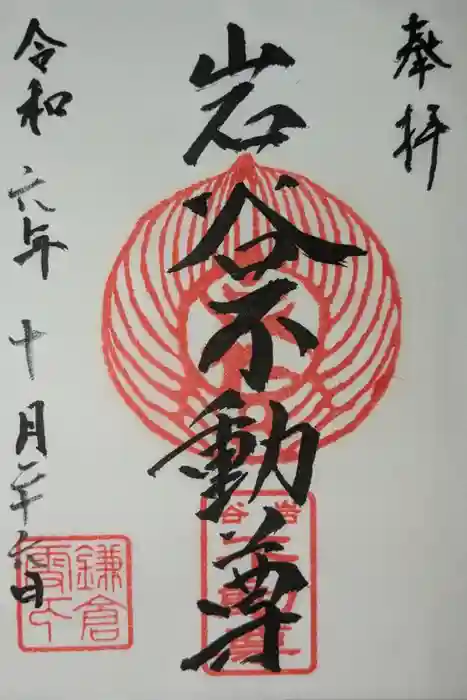 奉拝
岩谷不動尊
令和六年十月二十六日
岩谷
不動尊
鎌倉
雪ノ下